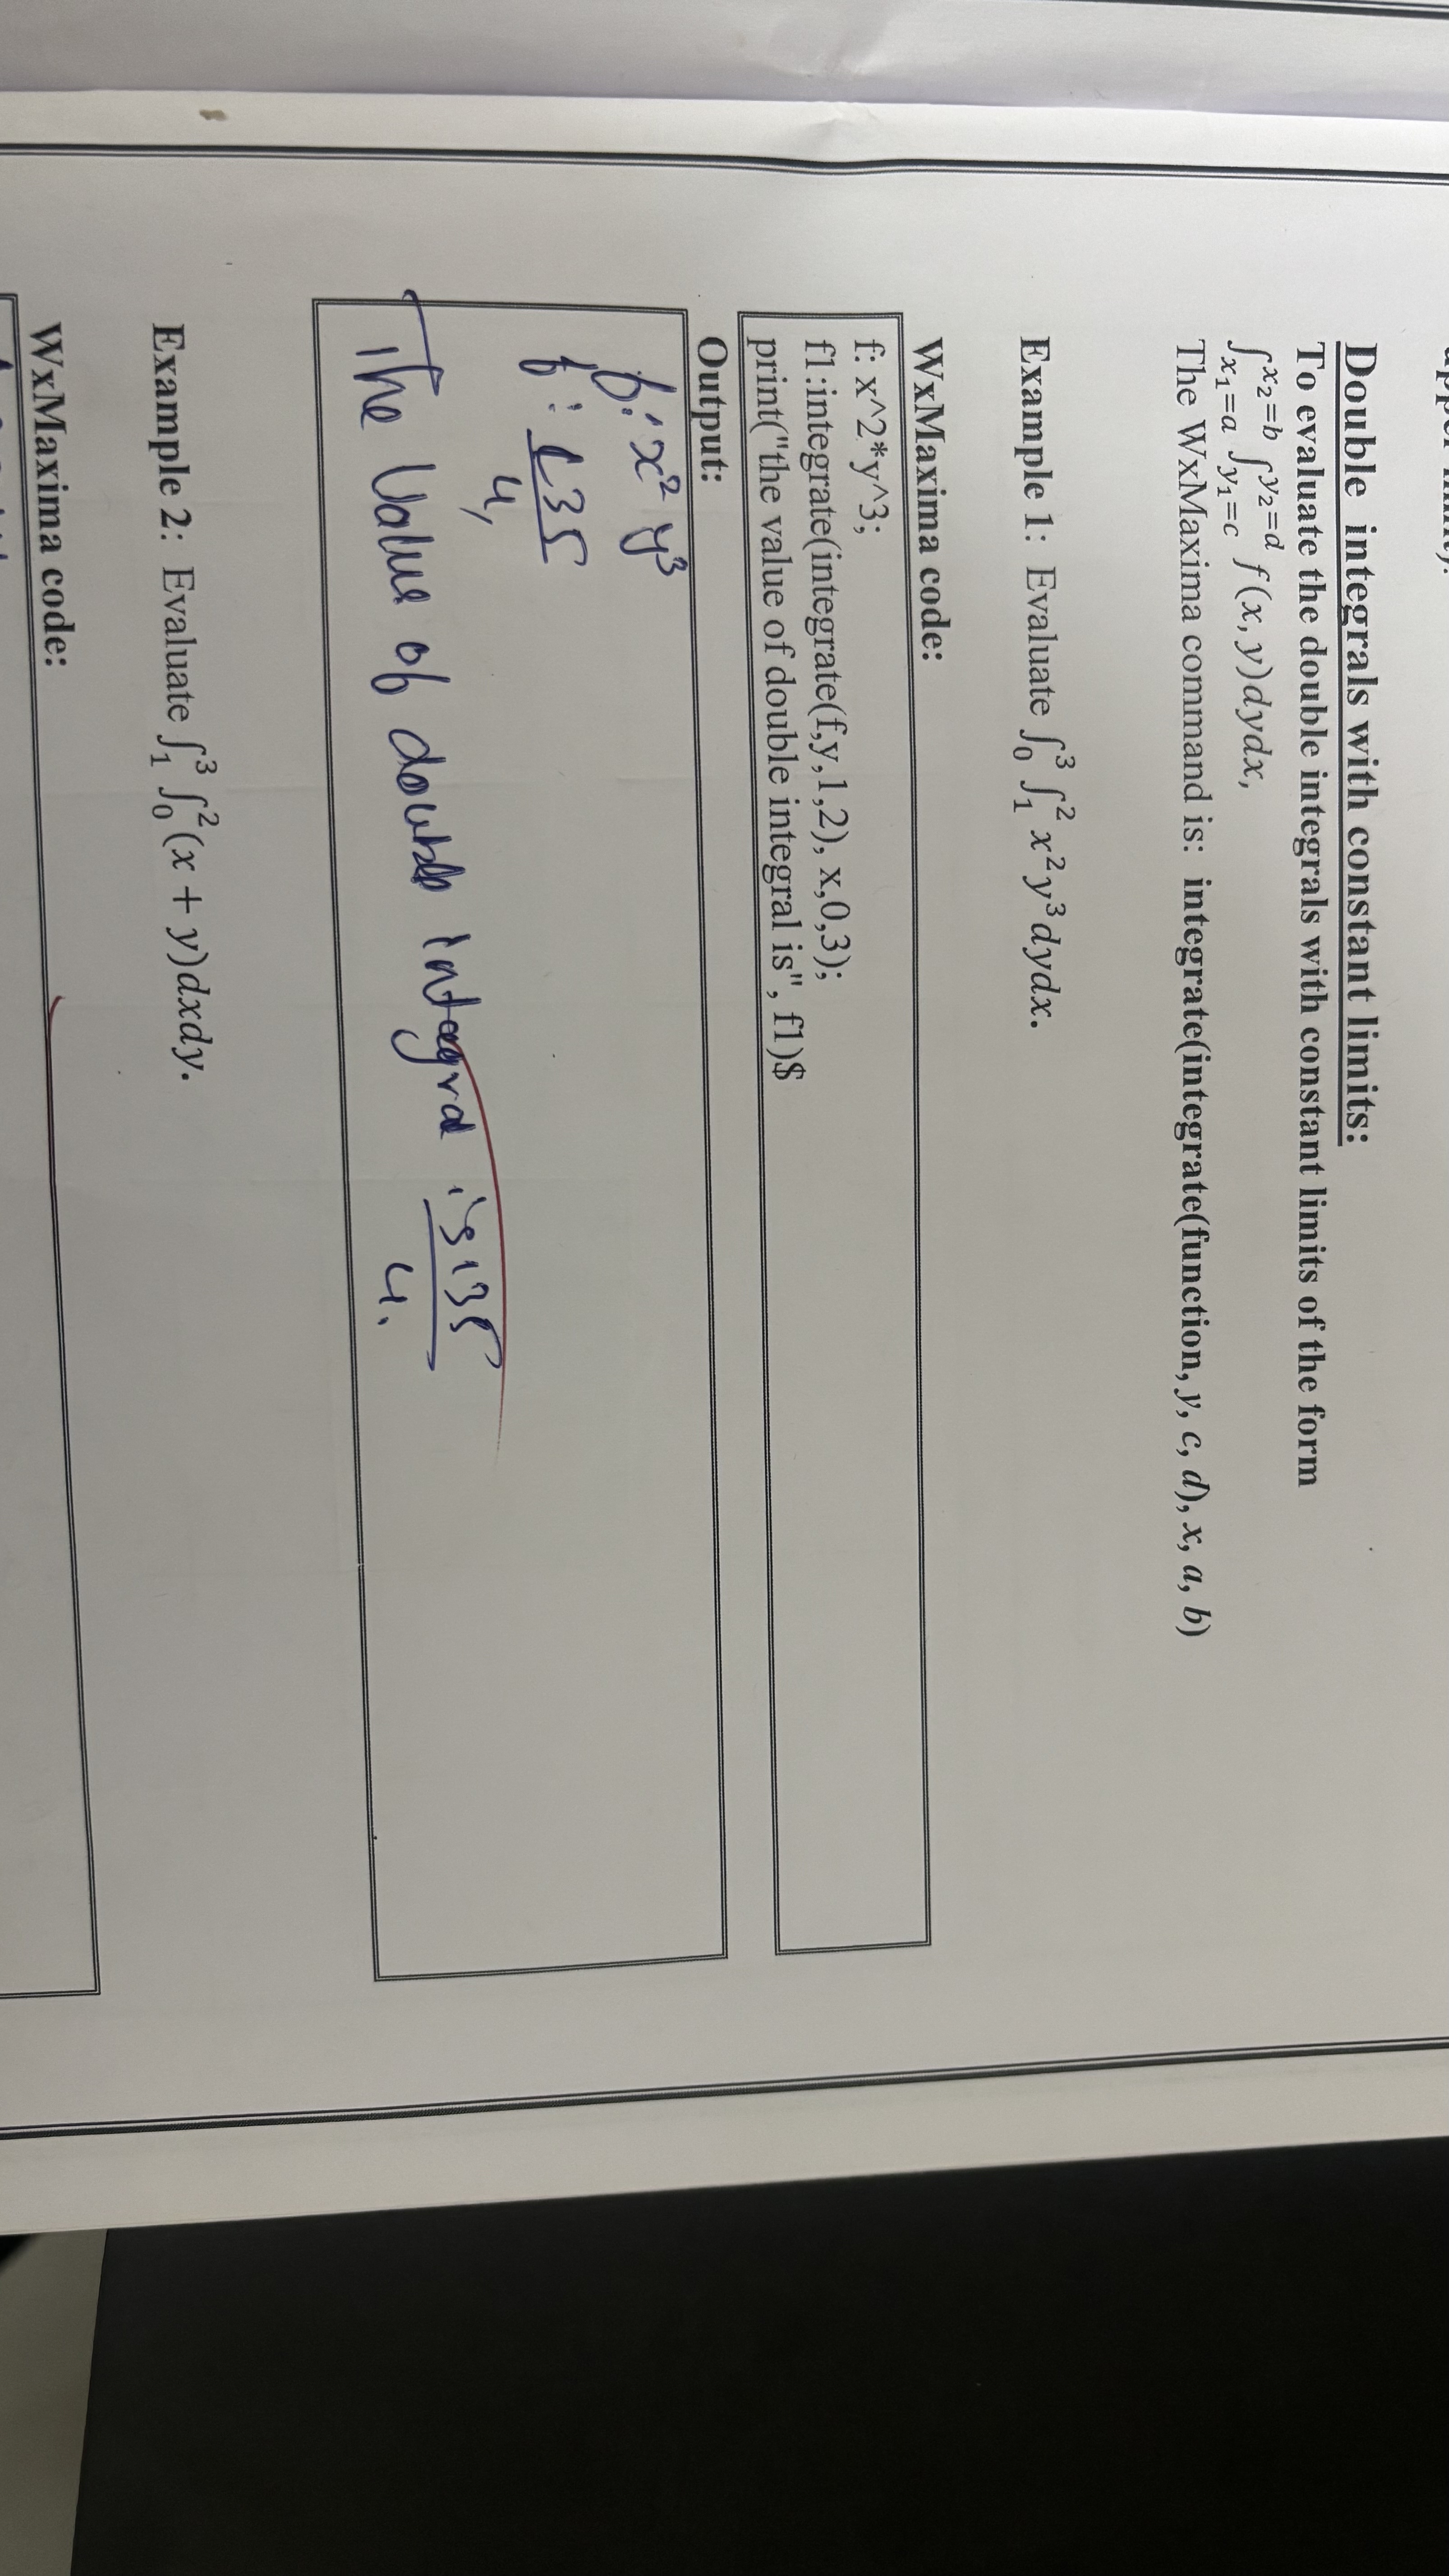 Double integrals with constant limits:
To evaluate the double integrals with constant limits of the form
∫_{x₁=a}^{x₂=b} ∫_{y₁=c}^{y₂=d} f(x, y)dydx,
The WxMaxima command is: integrate(integrate(function, y, c, d), x, a, b)
Example 1: Evaluate ∫₀³ ∫₁² x²y³dydx.
WxMaxima code:
f: x^2*y^3;
f1:integrate(integrate(f,y,1,2), x,0,3);
print("the value of double integral is", f1)$
Output:
f: x² y³
f: 135/4,
The Value of double integral is 135/4.
Example 2: Evaluate ∫₁³ ∫₀² (x + y)dxdy.
WxMaxima code: